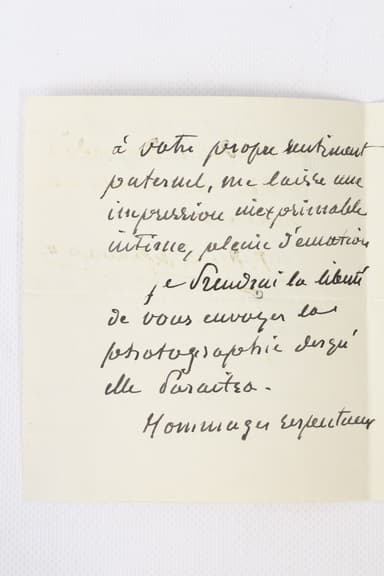 à votre propre sentiment
paternel, me laisse une
impression inexprimable
intime, pleine d'émotion
je prendrai la liberté
de vous envoyer la
photographie desqu'
elle paraitra.
Hommages respectueux